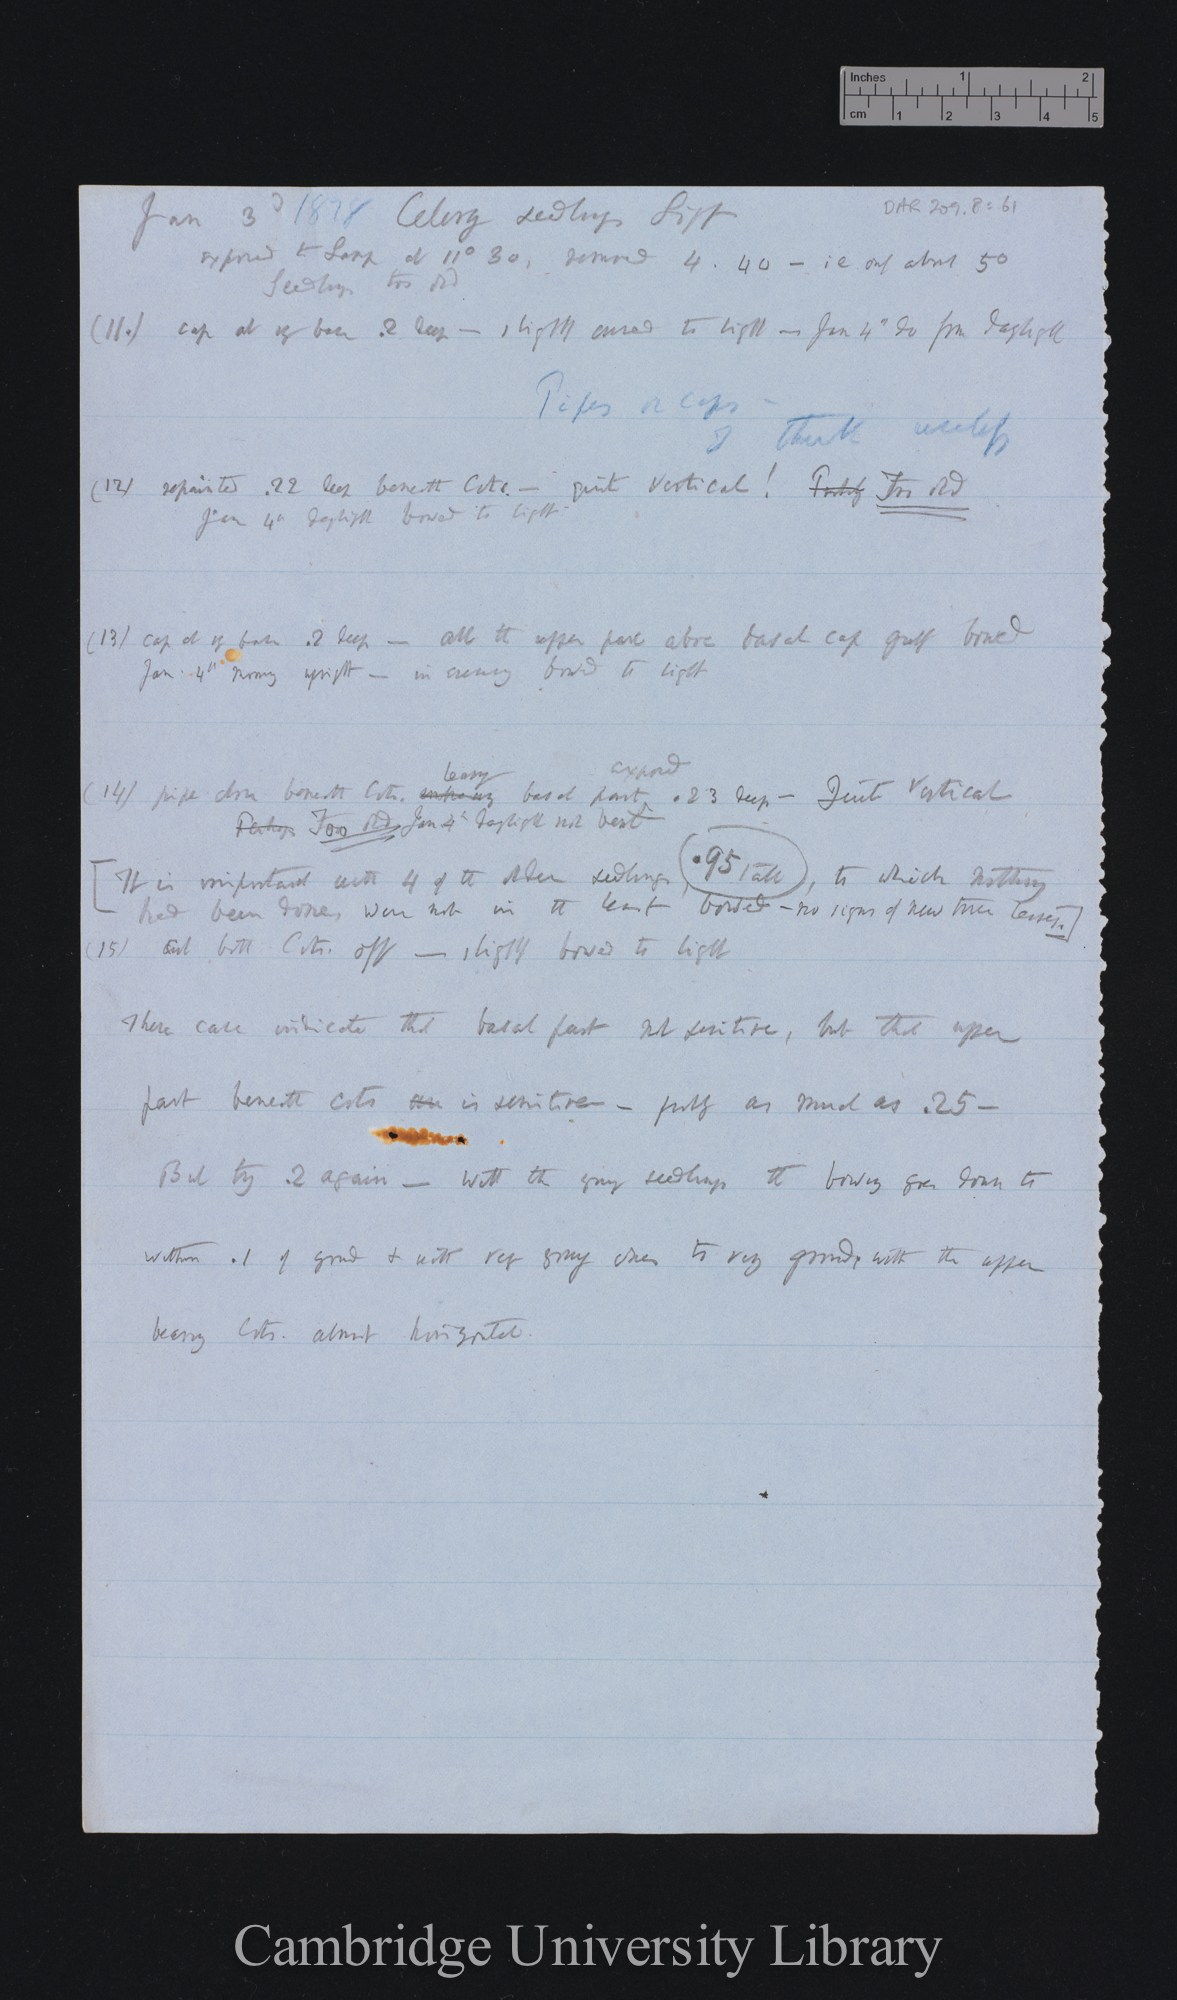 Inches 1 2
cm 1 2 3 4 5
DAR 209.8:61
Jan 3d 1878 Celery seedlings
exposed to Lamp at 11° 30, removed 4.40 — ie only about 50
Seedlings too old
(11.) cap at base .2 deep — slightly curved to light — Jan 4th do from daylight
Pipes or caps —
I think useless
(12) repainted .22 deep beneath Cots. — quite vertical! Too old
Jan 4th daylight bowed to light
(13) cap at base .2 deep — all the upper part above basal cap bowed
Jan. 4th morning upright — in evening bowed to light
leaving exposed
(14) pipe close beneath Cots. basal part .23 deep — Quite Vertical
Perhaps Too old Jan 4th daylight not bent
[It is important with 4 of the older seedlings, .95 tall, to which nothing
had been done, were not in the least bowed — no signs of new true leaves.]
(15) cut both Cots. off — slightly bowed to light
These cases indicate that basal part not sensitive, but that upper
part beneath cots is sensitive — probably as much as .25 —
But try .2 again — with the young seedlings the bowing goes down to
within .1 of ground & with very young ones to very ground, with the upper
bearing Cots. almost horizontal.
Cambridge University Library